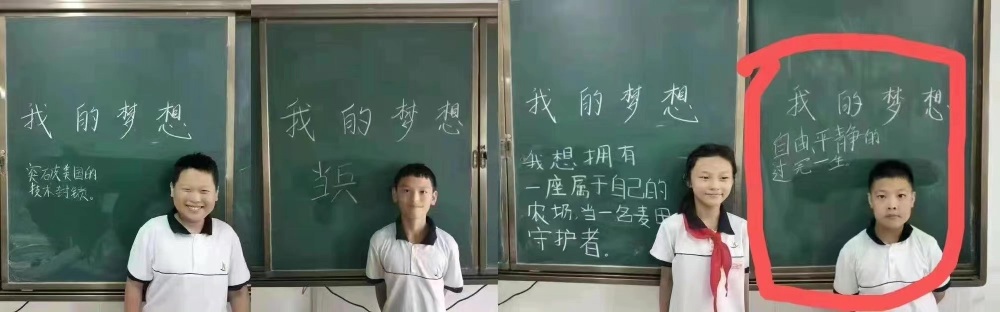 我的梦想
突破美国的
技术封锁。
我的梦想
当兵
我的梦想
我想拥有
一座属于自己的
农场,当一名麦田
守护者.
我的梦想
自由,平静的
过完一生